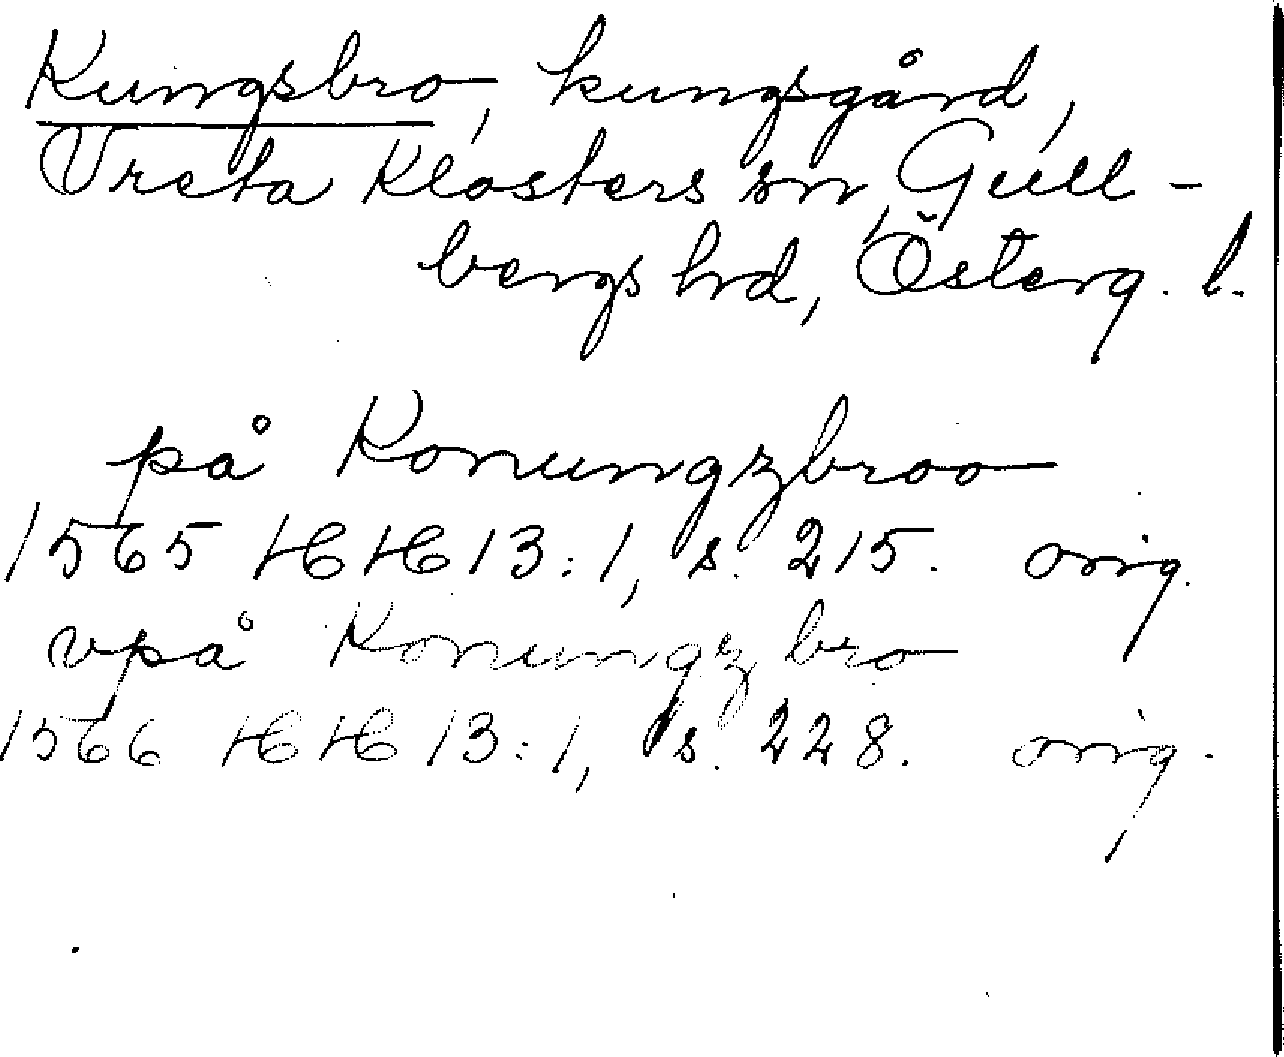 Kungsbro, kungsgård,
Vreta Klosters sn, Gull-
bergs hd, Österg. l.
på Konungzbroo
1565 HH 13:1, s. 215. orig.
vpå Konungzbro
1566 HH 13:1, s. 228. orig.